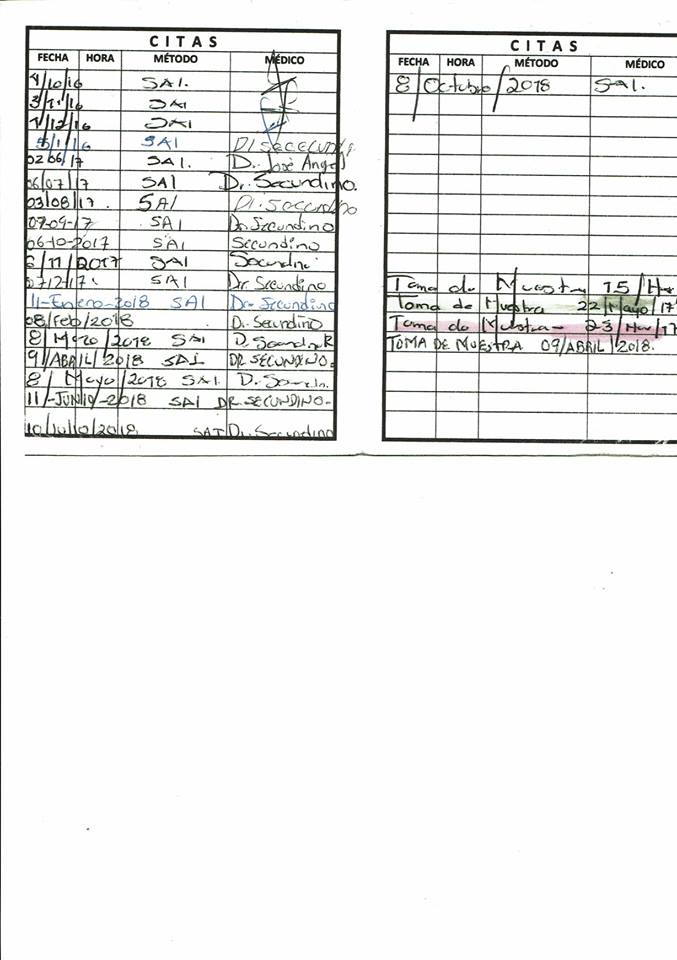 CITAS
FECHA HORA MÉTODO MÉDICO
4/10/16 SAI.
3/11/16 SAI
1/12/16 SAI
5/1/16 SAI
02/06/17 SAI. D. José Angel
06/07/17 SAI Dr. Secundino.
03/08/17. SAI Dr. Secundino
07-09-17 SAI Dr. Secundino
06-10-2017 SAI Secundino
6/11/2017 SAI Secundino
07/12/17. SAI Dr. Secundino
11-Enero-2018 SAI Dr. Secundino
08/Feb/2018 D. Secundino
8/Marzo/2018 SAI D.
9/ABRIL/2018 SAI DR SECUNDINO.
8/Mayo/2018 SAI D.
11/-JUNIO-2018 SAI DR. SECUNDINO-
10/Julio/2018 SAI Dr. Secundino
CITAS
FECHA HORA MÉTODO MÉDICO
8/Octubre/2018 SAI.
Toma de Muestra 15/
Toma de Muestra 22/Mayo/17
Toma de Muestra 23/ /17
TOMA DE MUESTRA 09/ABRIL/2018.